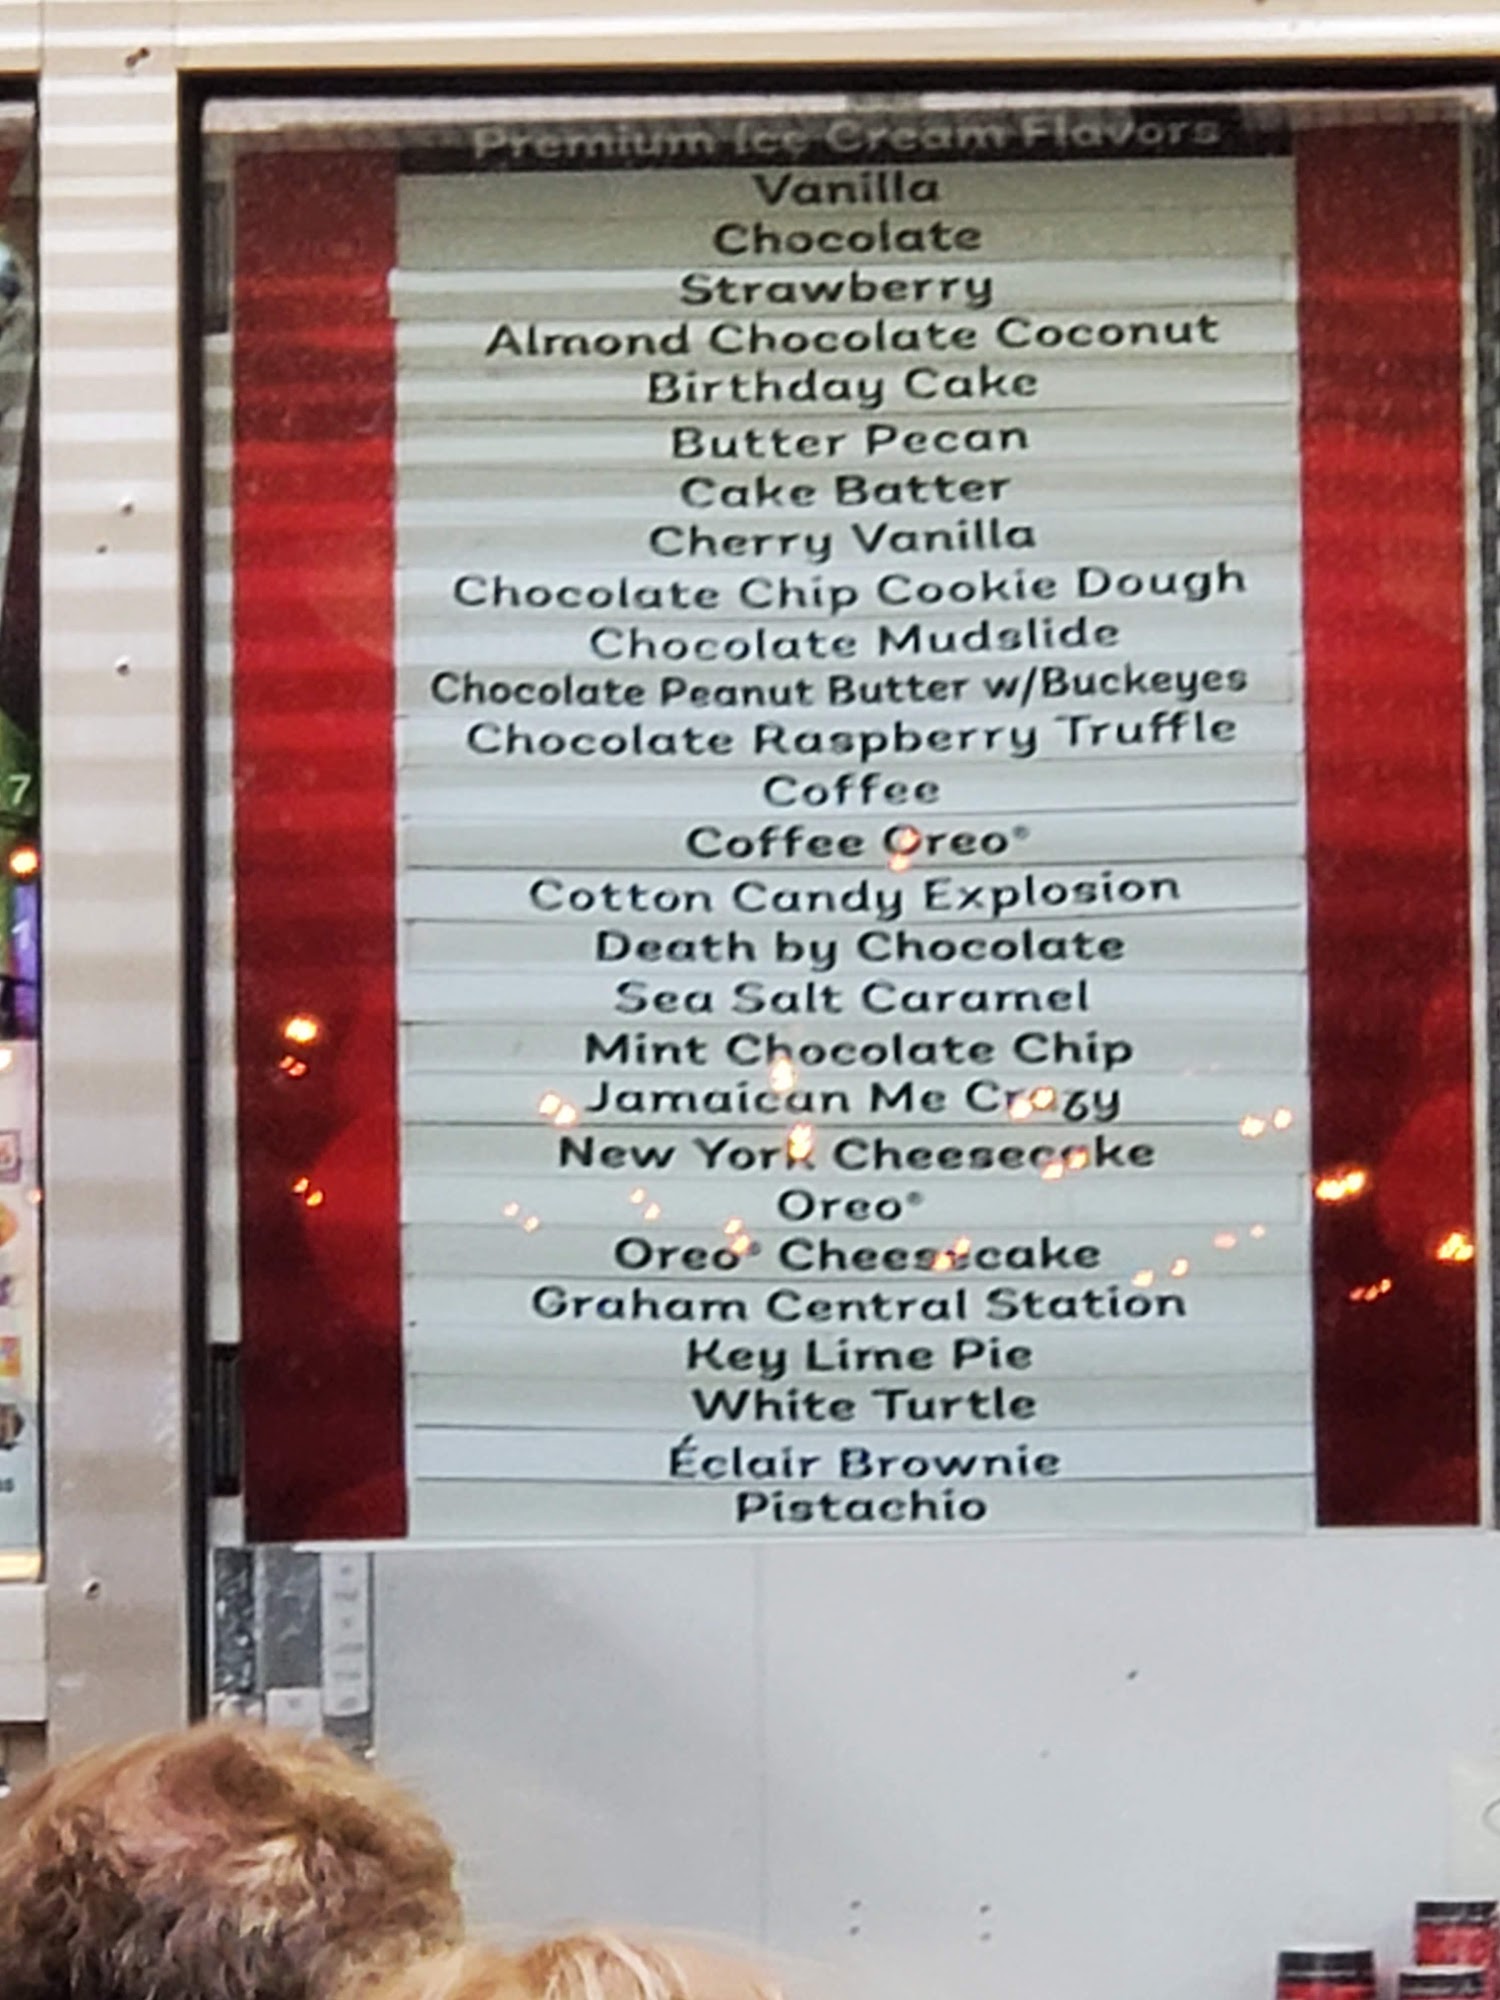 Premium Ice Cream Flavors
Vanilla
Chocolate
Strawberry
Almond Chocolate Coconut
Birthday Cake
Butter Pecan
Cake Batter
Cherry Vanilla
Chocolate Chip Cookie Dough
Chocolate Mudslide
Chocolate Peanut Butter w/Buckeyes
Chocolate Raspberry Truffle
Coffee
Coffee Oreo®
Cotton Candy Explosion
Death by Chocolate
Sea Salt Caramel
Mint Chocolate Chip
Jamaican Me Crazy
New York Cheesecake
Oreo®
Oreo® Cheesecake
Graham Central Station
Key Lime Pie
White Turtle
Éclair Brownie
Pistachio
7